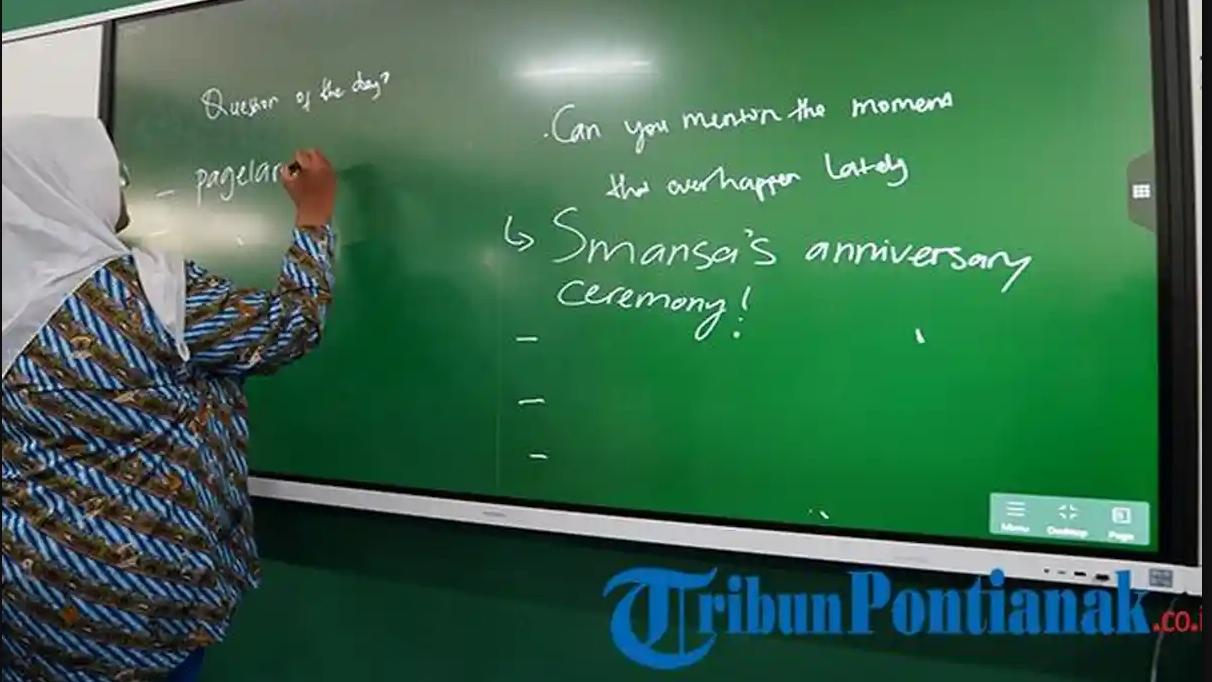 Question of the day?
- pagelar
. Can you mention the moment
that overhappen lately
↳ Smansa's anniversary
ceremony!
-
-
-
Menu Desktop Page
TribunPontianak.co.i